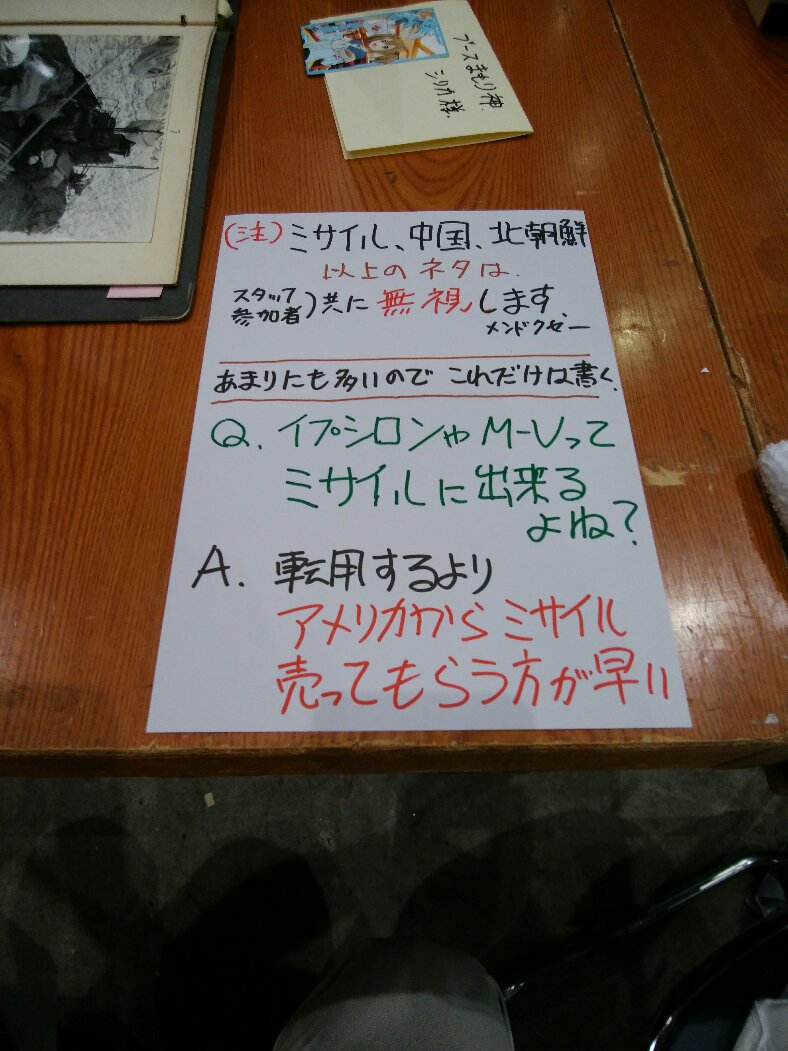 ブースまもり神
シリカ様.
(注)ミサイル、中国、北朝鮮
以上のネタは.
スタッフ
参加者)共に無視します.
メンドクセー
あまりにも多いので これだけは書く.
Q. イプシロンやM-Vって
ミサイルに出来る
よね?
A. 転用するより
アメリカからミサイル
売ってもらう方が早い